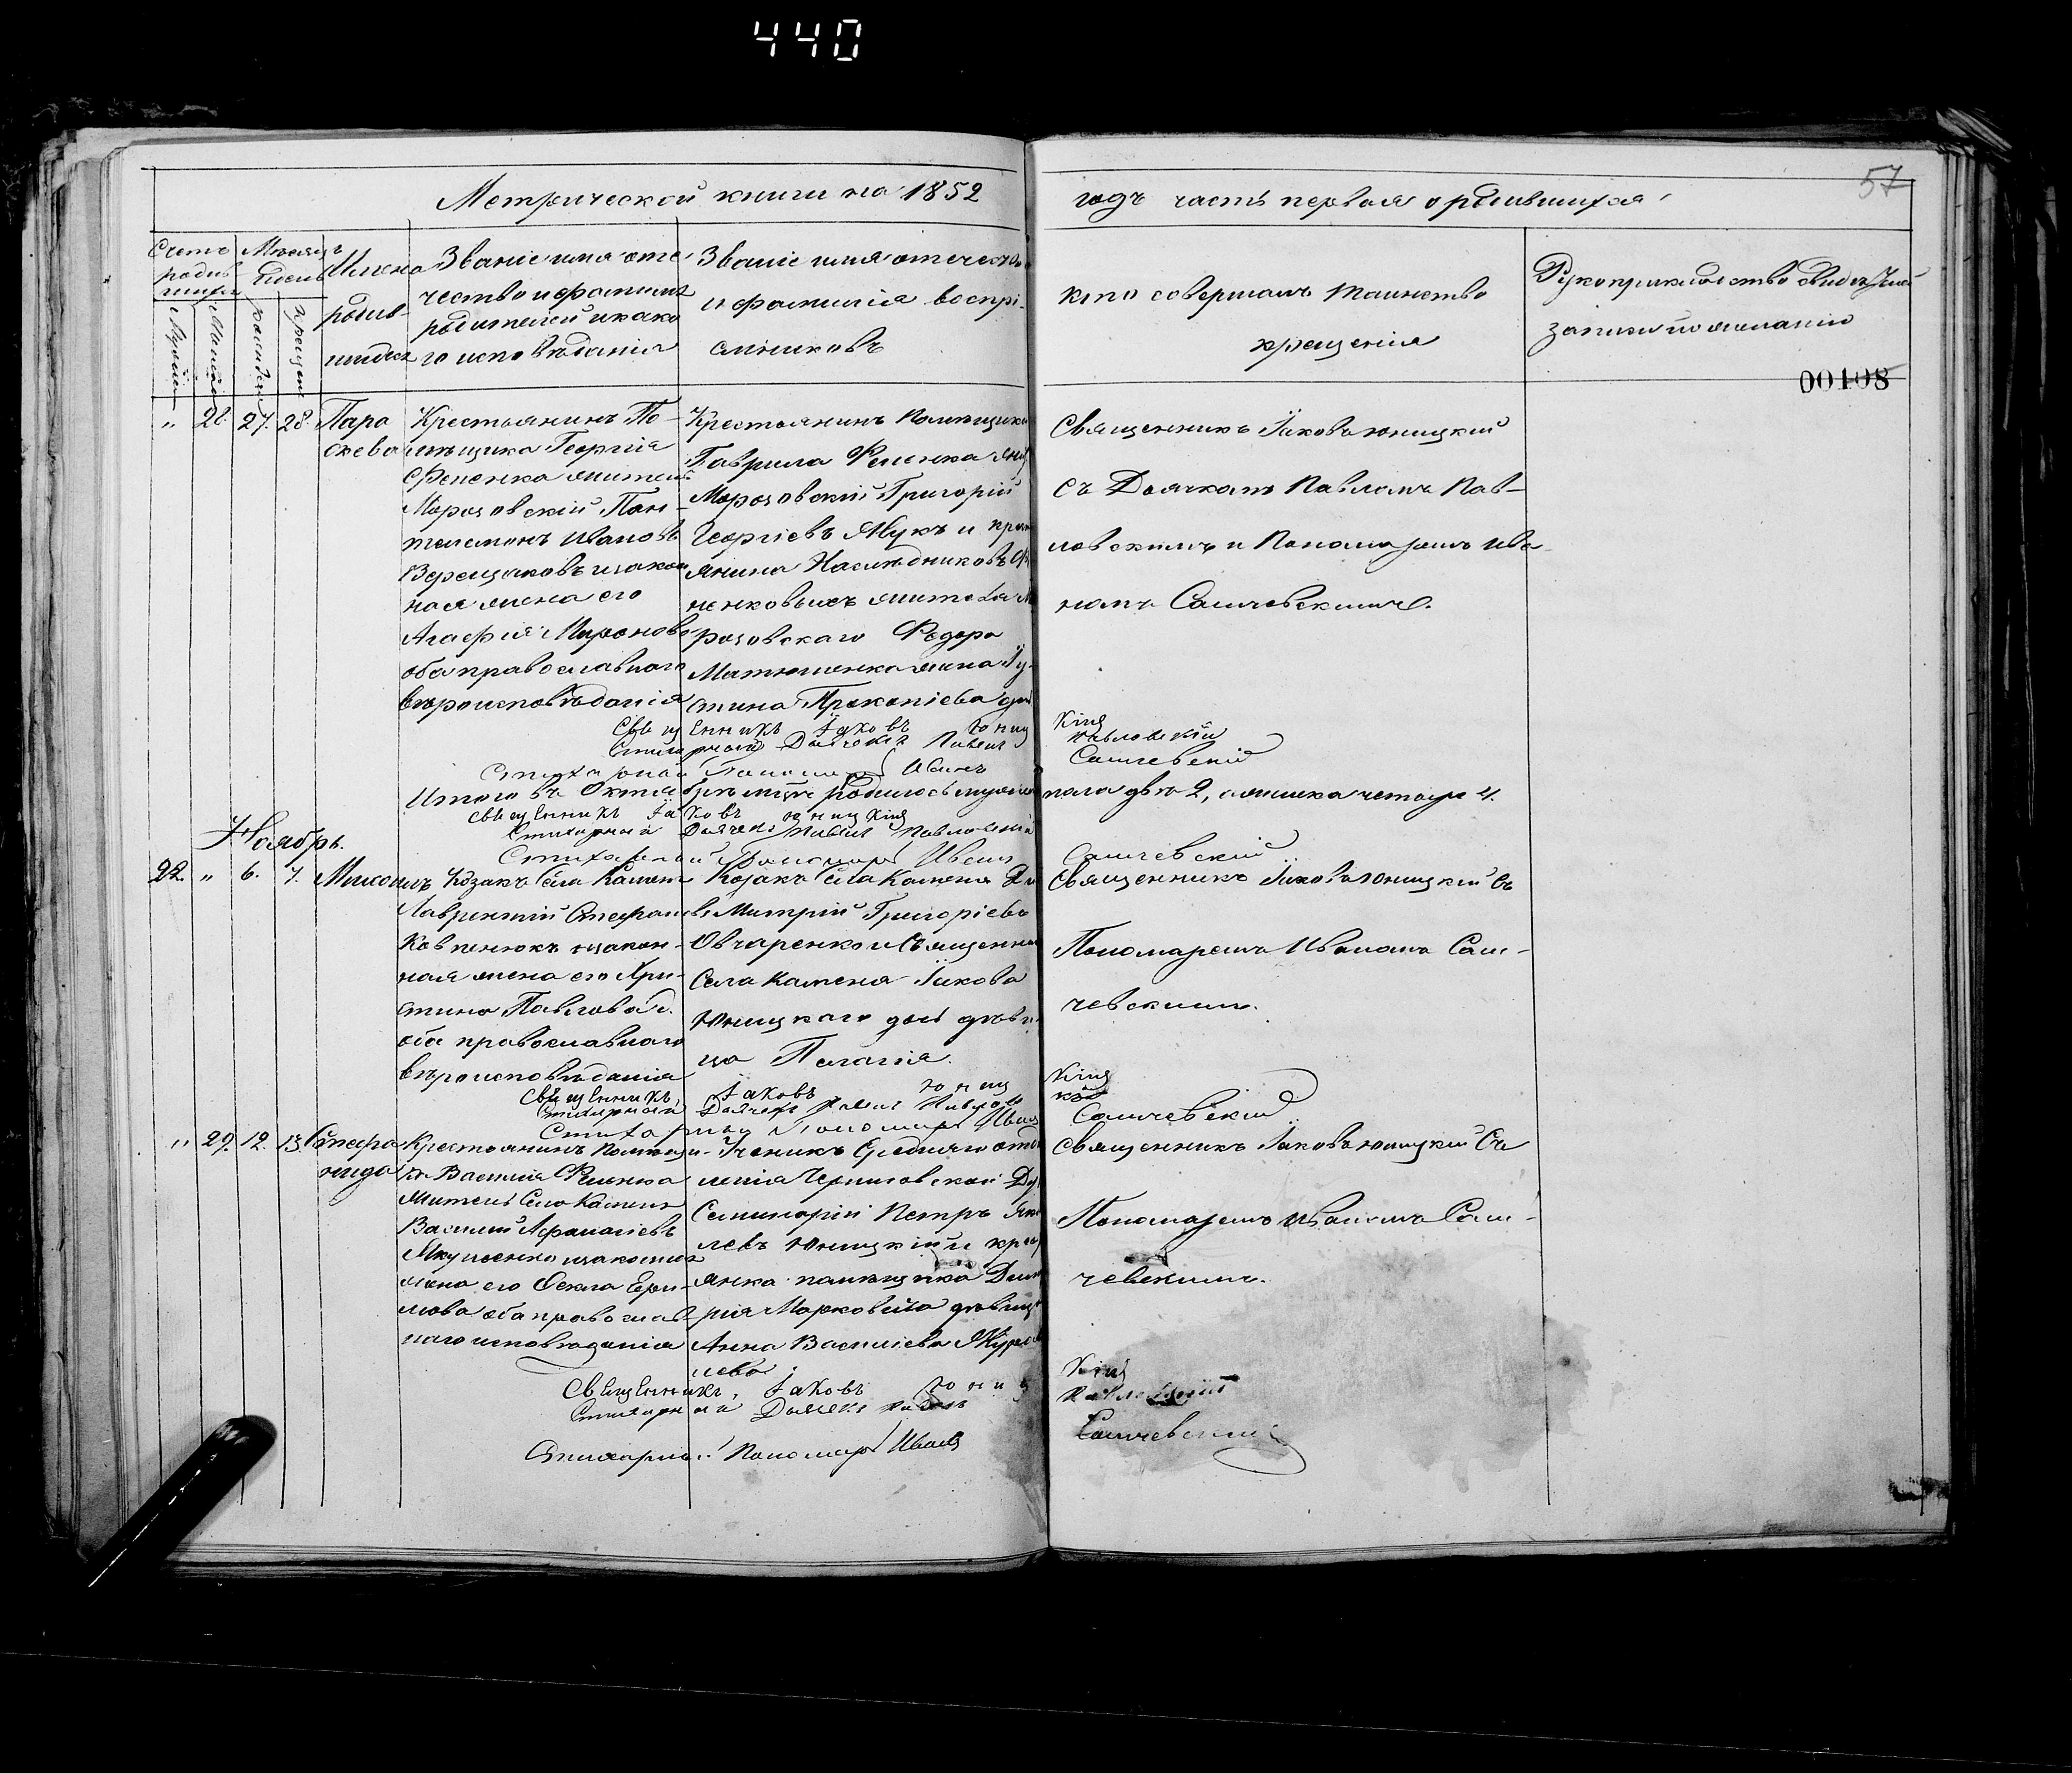 440
57
Метрической книги на 1852
годъ часть первая о родившихся
Счетъ родившихся
Мѣсяцъ день
Имена родившихся
Званіе имя отечество и фамилія родителей и какого исповѣданія
Званіе имя отечество и фамилія воспріемниковъ
кто совершалъ таинство крещенія
Рукоприкладство свидѣтелей записи по желанію
00108
" 28. 27. 28. Параскева
Крестьянинъ По-
мѣщика Георгія
Фененка житель
Морозовскій Пан-
телемонъ Ивановъ
Верещаковъ и закон
ная жена его
Агафія Миронова
оба православнаго
вѣроисповѣданія
Крестьянинъ Помѣщика
Гаврила Фененка
Морозовскій Григорій
Георгіевъ Жукъ и
янина Наслѣдниковъ
ненковыхъ жителя
розовскаго Федора
Матюшенка жена Іу-
стина Прокопіева
Священникъ Іаковъ Юницкій
съ Дьячкомъ Павломъ Пав-
ловскимъ и Пономаремъ Ива-
номъ Самчевскимъ.
Священникъ Іаковъ Юницкій
Стихарный Дьячекъ Павелъ Павловскій
Стихарный Пономарь Иванъ Самчевскій
Итого въ Октябрѣ родилось
пола два 2, а женска четыре 4.
Священникъ Іаковъ Юницкій
Стихарный Дьячекъ Павелъ Павловскій
Стихарный Пономарь Иванъ Самчевскій
Ноябрь.
22. " 6. 7. Михаилъ
Козакъ села Каменя
Лаврентій Стефановъ
Ковпенюкъ и закон-
ная жена его Хри-
стина Павлова
оба православнаго
вѣроисповѣданія
Козакъ села Каменя Ди
Митрій Григоріевъ
Овчаренко и Священника
Села Каменя Іакова
Юницкаго дочь дѣви-
ца Пелагія.
Священникъ Іаковъ Юницкій съ
Пономаремъ Иваномъ Сам-
чевскимъ.
Священникъ Іаковъ Юницкій
Стихарный Дьячекъ Павелъ
Стихарный Пономарь Иванъ Самчевскій
" 29. 12. 13. Стефанида
Крестьянинъ помѣщи-
ка Василія Фененка
житель Села Каменя
Василій Афанасіевъ
и законная
жена его Фекла
оба православ
наго исповѣданія
Ученикъ Средняго отдѣ
ленія Черниговской
Семинаріи Петръ
левъ Юницкій и
янка помѣщика
рія Марковича дѣвица
Анна Василіева
лева
Священникъ Іаковъ Юницкій съ
Пономаремъ Иваномъ Сам-
чевскимъ.
Священникъ, Іаковъ Юницкій
Стихарный Дьячекъ Павелъ Павловскій
Стихарный Пономарь Иванъ Самчевскій